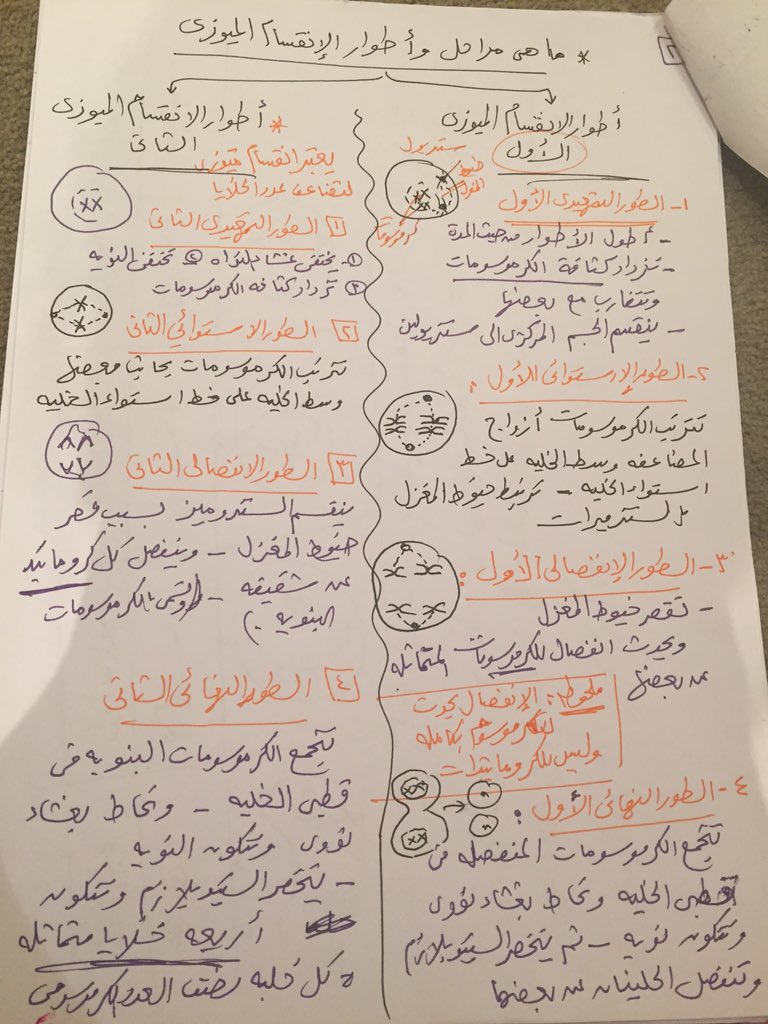 * ما هى مراحل وأطوار الإنقسام الميوزى
أطوار الانقسام الميوزى
الأول
سنتريول
خيوط
المغزل
كرموسومات
١- الطور التمهيدى الأول
- أطول الأطوار من حيث المدة
- تزداد كثافة الكرموسومات
وتتقارب مع بعضها
- ينقسم الجسم المركزى الى سنتريولين
٢- الطور الإستوائى الأول :
تترتب الكرموسومات أزواج
المضاعفه وسط الخليه على خط
استواء الخليه - ترتبط خيوط المغزل
بالسنترميرات
٣- الطور الإنفصالى الأول :
- تقصر خيوط المغزل
ويحدث انفصال للكرموسومات المتماثله
عن بعضها
ملحوظه : الإنفصال يحدث
للكرموسوم بكامله
وليس للكروماتيدات
٤- الطور النهائى الأول :
تتجمع الكرموسومات المنفصله فى
قطبى الخليه وتحاط بغشاء نووى
وتتكون نويه - ثم يتخصر السيتوبلازم
وتنفصل الخليتان عن بعضها
* أطوار الانقسام الميوزى
الثانى
يعتبر انقسام ميتوزى
لتضاعف عدد الخلايا
١ الطور التمهيدى الثانى
١- يختفى غشاء النواه ٢ تختفى النويه
٣ تزداد كثافه الكرموسومات
٢ الطور الاستوائي الثانى
تترتب الكرموسومات بجانب بعضها
وسط الخليه على خط استواء الخليه
٣ الطور الانفصالى الثانى
ينقسم السنترومير بسبب قصر
خيوط المغزل - وينفصل كل كروماتيد
عن شقيقه - (وتسمى بالكرموسومات
البنويه .)
٤ الطور النهائى الثانى
تتجمع الكرموسومات البنويه فى
قطبى الخليه - وتحاط بغشاء
نووى وتتكون النويه
- يتخصر السيتوبلازم وتتكون
أربعه خلايا متماثله
كل خليه بنصف العدد الكرموسومى